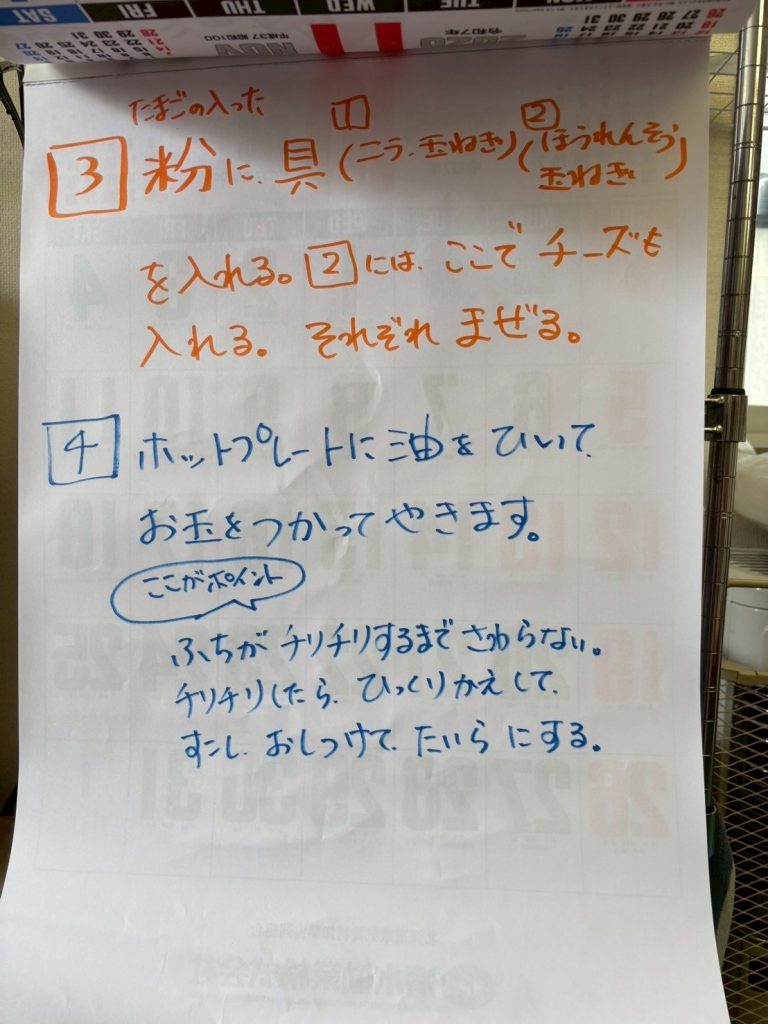 たまごの入った
3 粉に、具 (ニラ、玉ねぎ) (ほうれんそう
1 2 玉ねぎ)
を入れる。2には、ここでチーズも
入れる。それぞれまぜる。
4 ホットプレートに油をひいて、
お玉をつかってやきます。
ここがポイント
ふちがチリチリするまでさわらない。
チリチリしたら、ひっくりかえして、
すこし、おしつけて、たいらにする。
SAT FRI THU WED TUE
NOV 11 2025 令和7年
平成37 昭和100